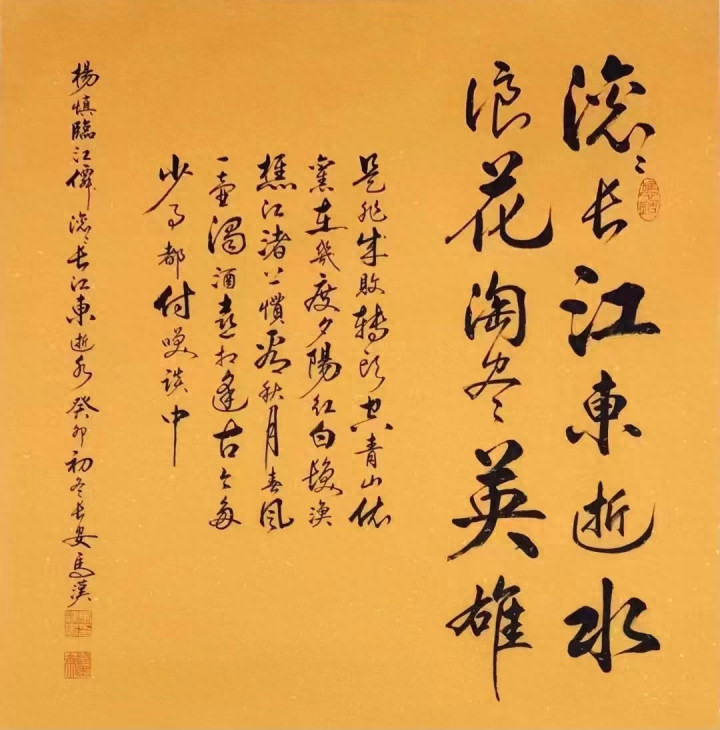 滚〻长江東逝水
浪花淘尽英雄
是非成敗轉头空青山依
舊在幾度夕陽红白髮渔
樵江渚上慣看秋月春风
一壺濁酒喜相逢古今多
少事都付笑谈中
楊慎臨江僊滚〻长江東逝水癸卯初冬长安馬漢